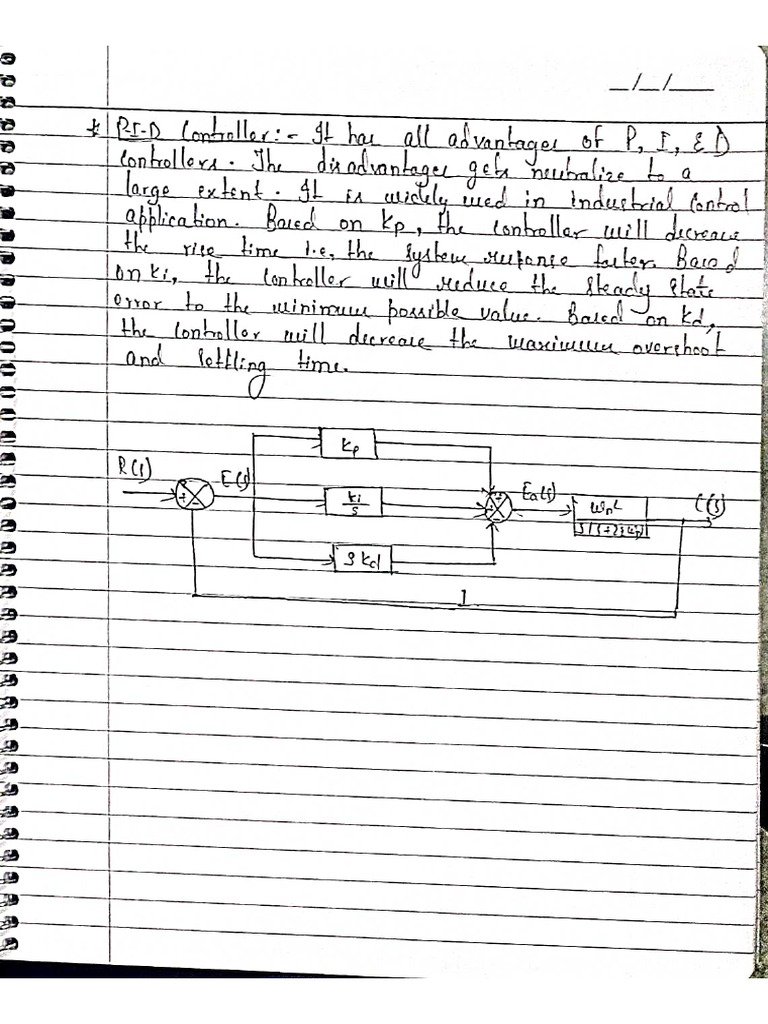 _/_/___
* P-I-D Controller:- It has all advantages of P, I, & D
Controllers. The disadvantages gets neutralize to a
large extent. It is widely used in industrial Control
application. Based on Kp, the Controller will decrease
the rise time i.e, the system response faster. Based
on Ki, the Controller will reduce the steady state
error to the minimum possible value. Based on Kd,
the Controller will decrease the maximum overshoot
and settling time.
Kp
R(s) E(s) Ki/s Ea(s) ωn² C(s)
+ - + + +
SKd
1